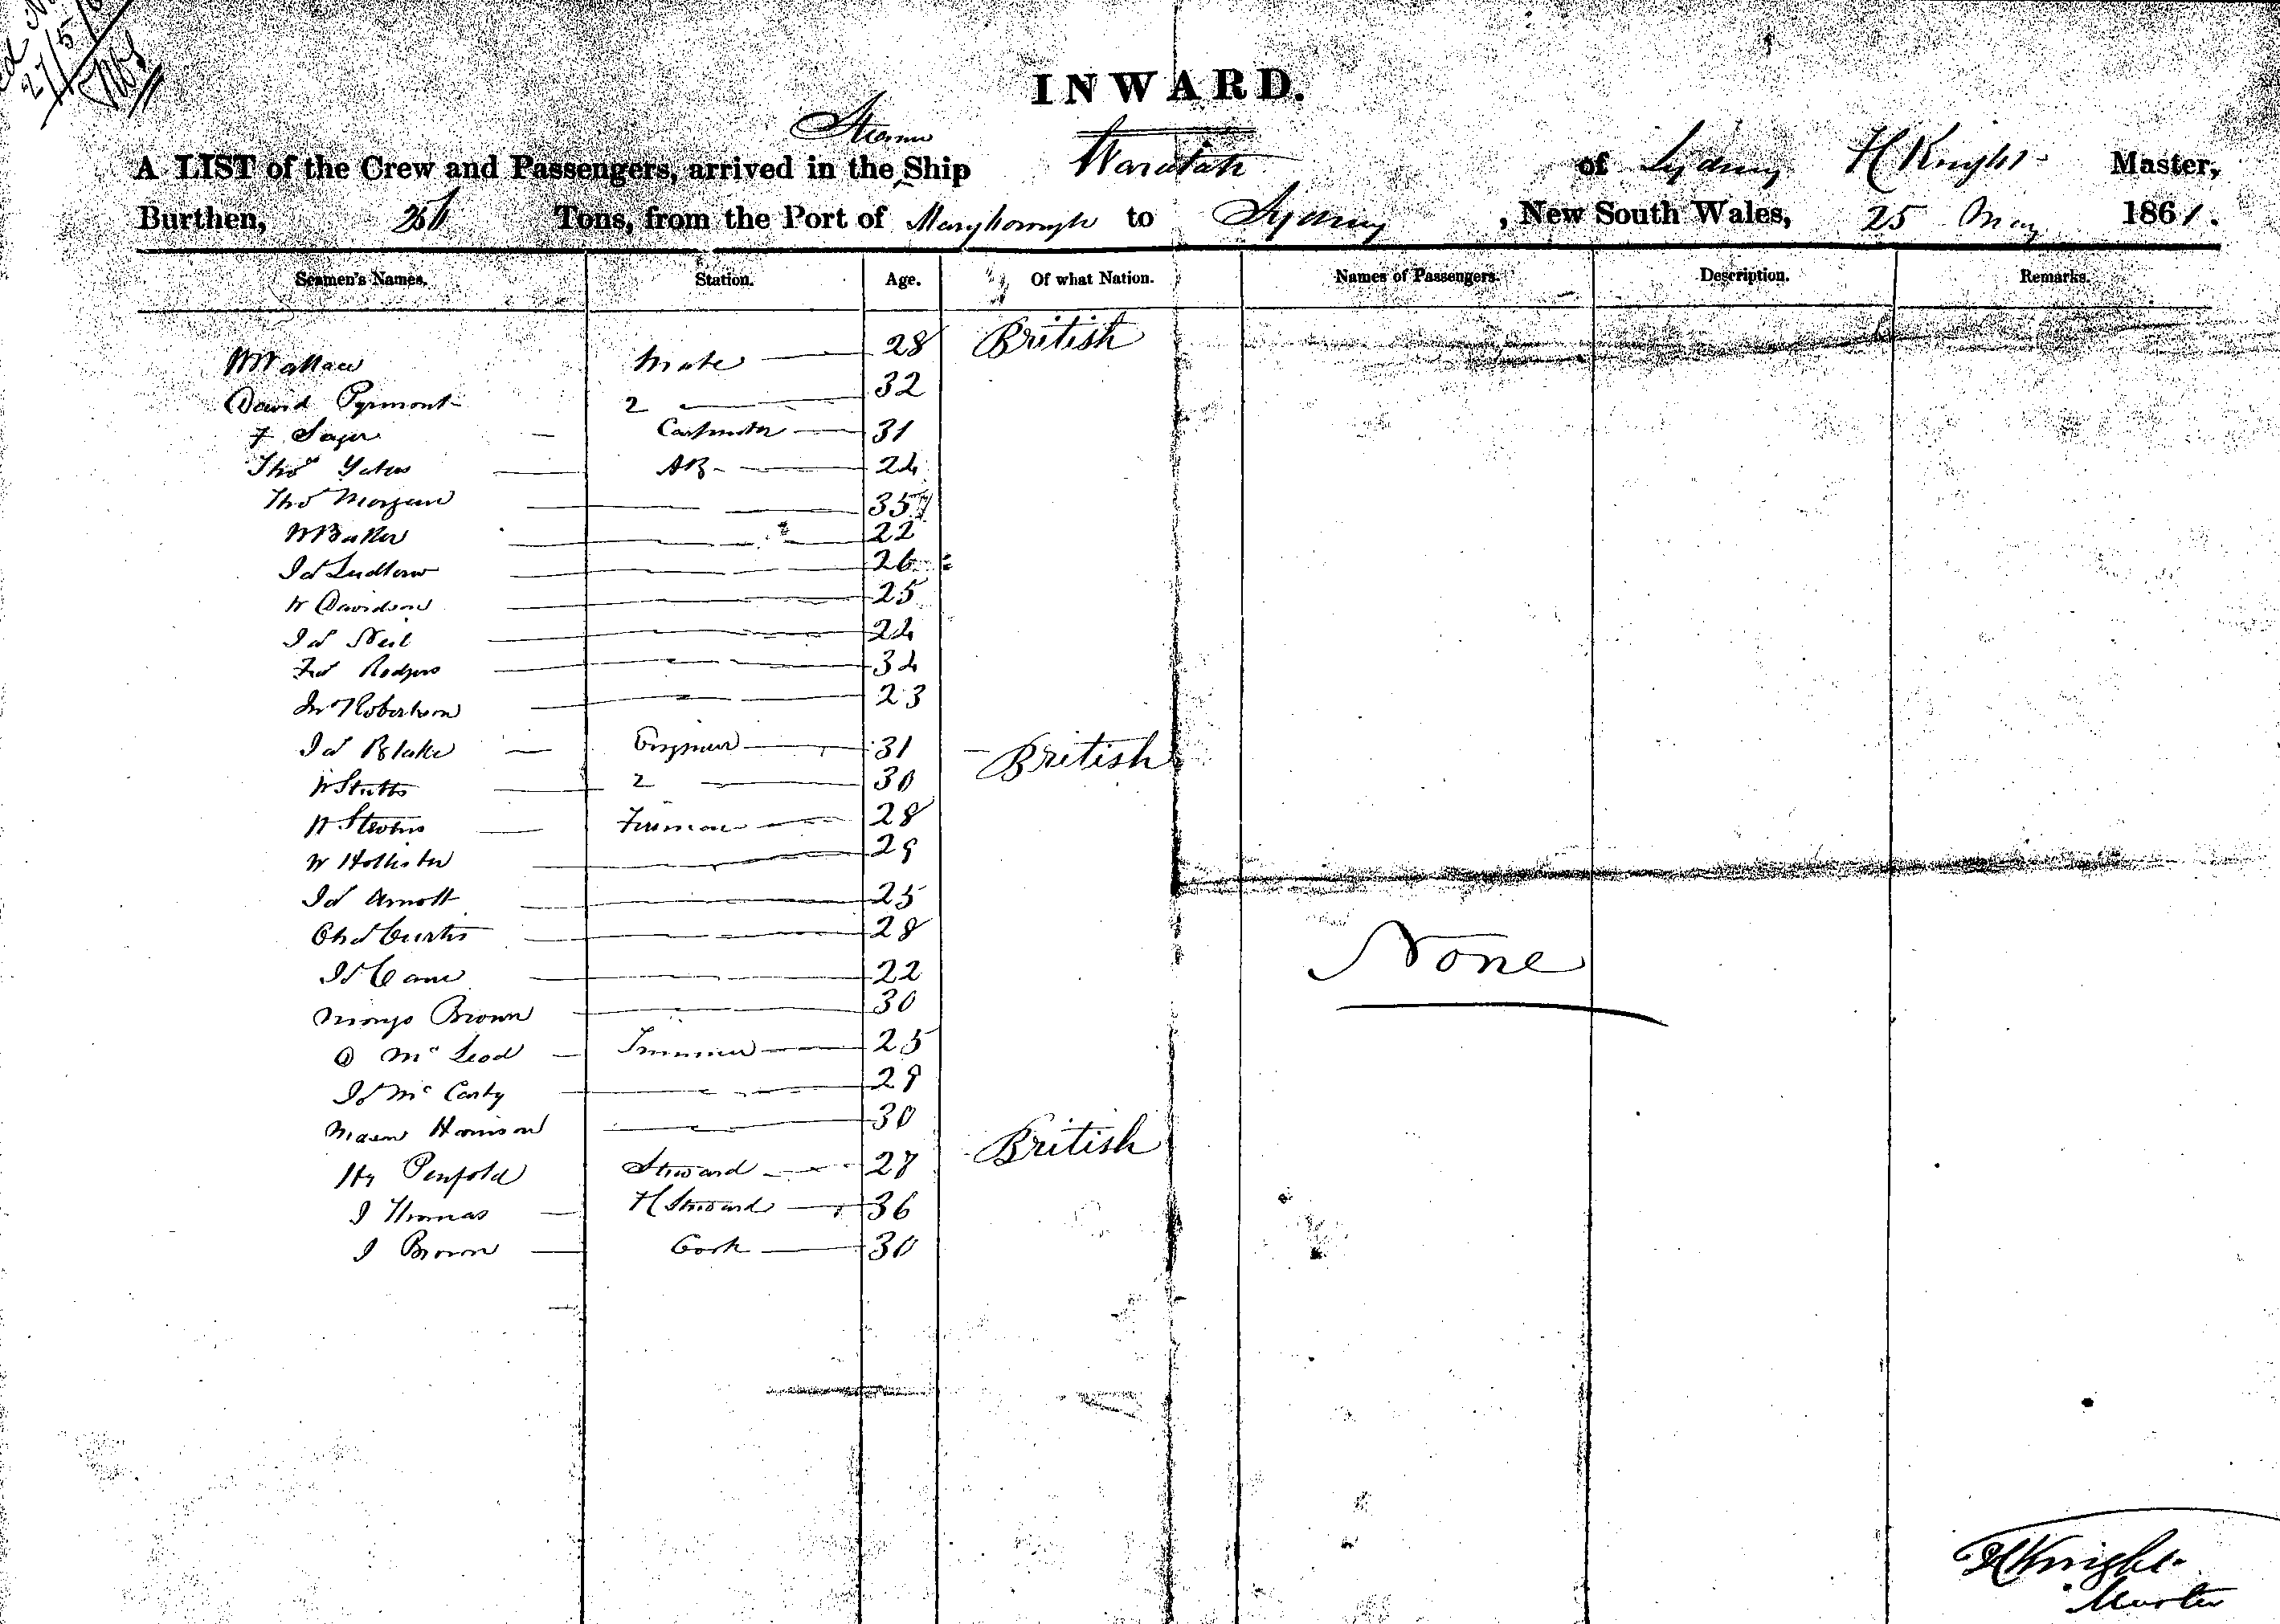 27/5/6
INWARD.
Steamer
A LIST of the Crew and Passengers, arrived in the Ship Waratah of Sydney H Knight Master,
Burthen, 256 Tons, from the Port of Maryborough to Sydney, New South Wales, 25 May 1861.
Seamen's Names. Station. Age. Of what Nation. Names of Passengers. Description. Remarks.
W Wallace Mate 28 British
David Pyrmont 2 32
F Sager Carpenter 31
Thos Yates AB 24
Thos Morgan 35
W Baker 22
Js Ludlow 26
W Davidson 25
Js Neil 24
Fs Rodgers 34
Jn Robertson 23
Js Blake Engineer 31 British
W Stubbs 2 30
W Stevens Fireman 28
W Hollister 29
Js Arnott 25
Chs Curtis 28
Js Cane 22 None
Mongo Brown 30
D McLeod Trimmer 25
Js McCarty 29
Harrison 30 British
Hy Penfold Steward 27
J Thomas F Steward 36
J Brown Cook 30
H Knight
Master